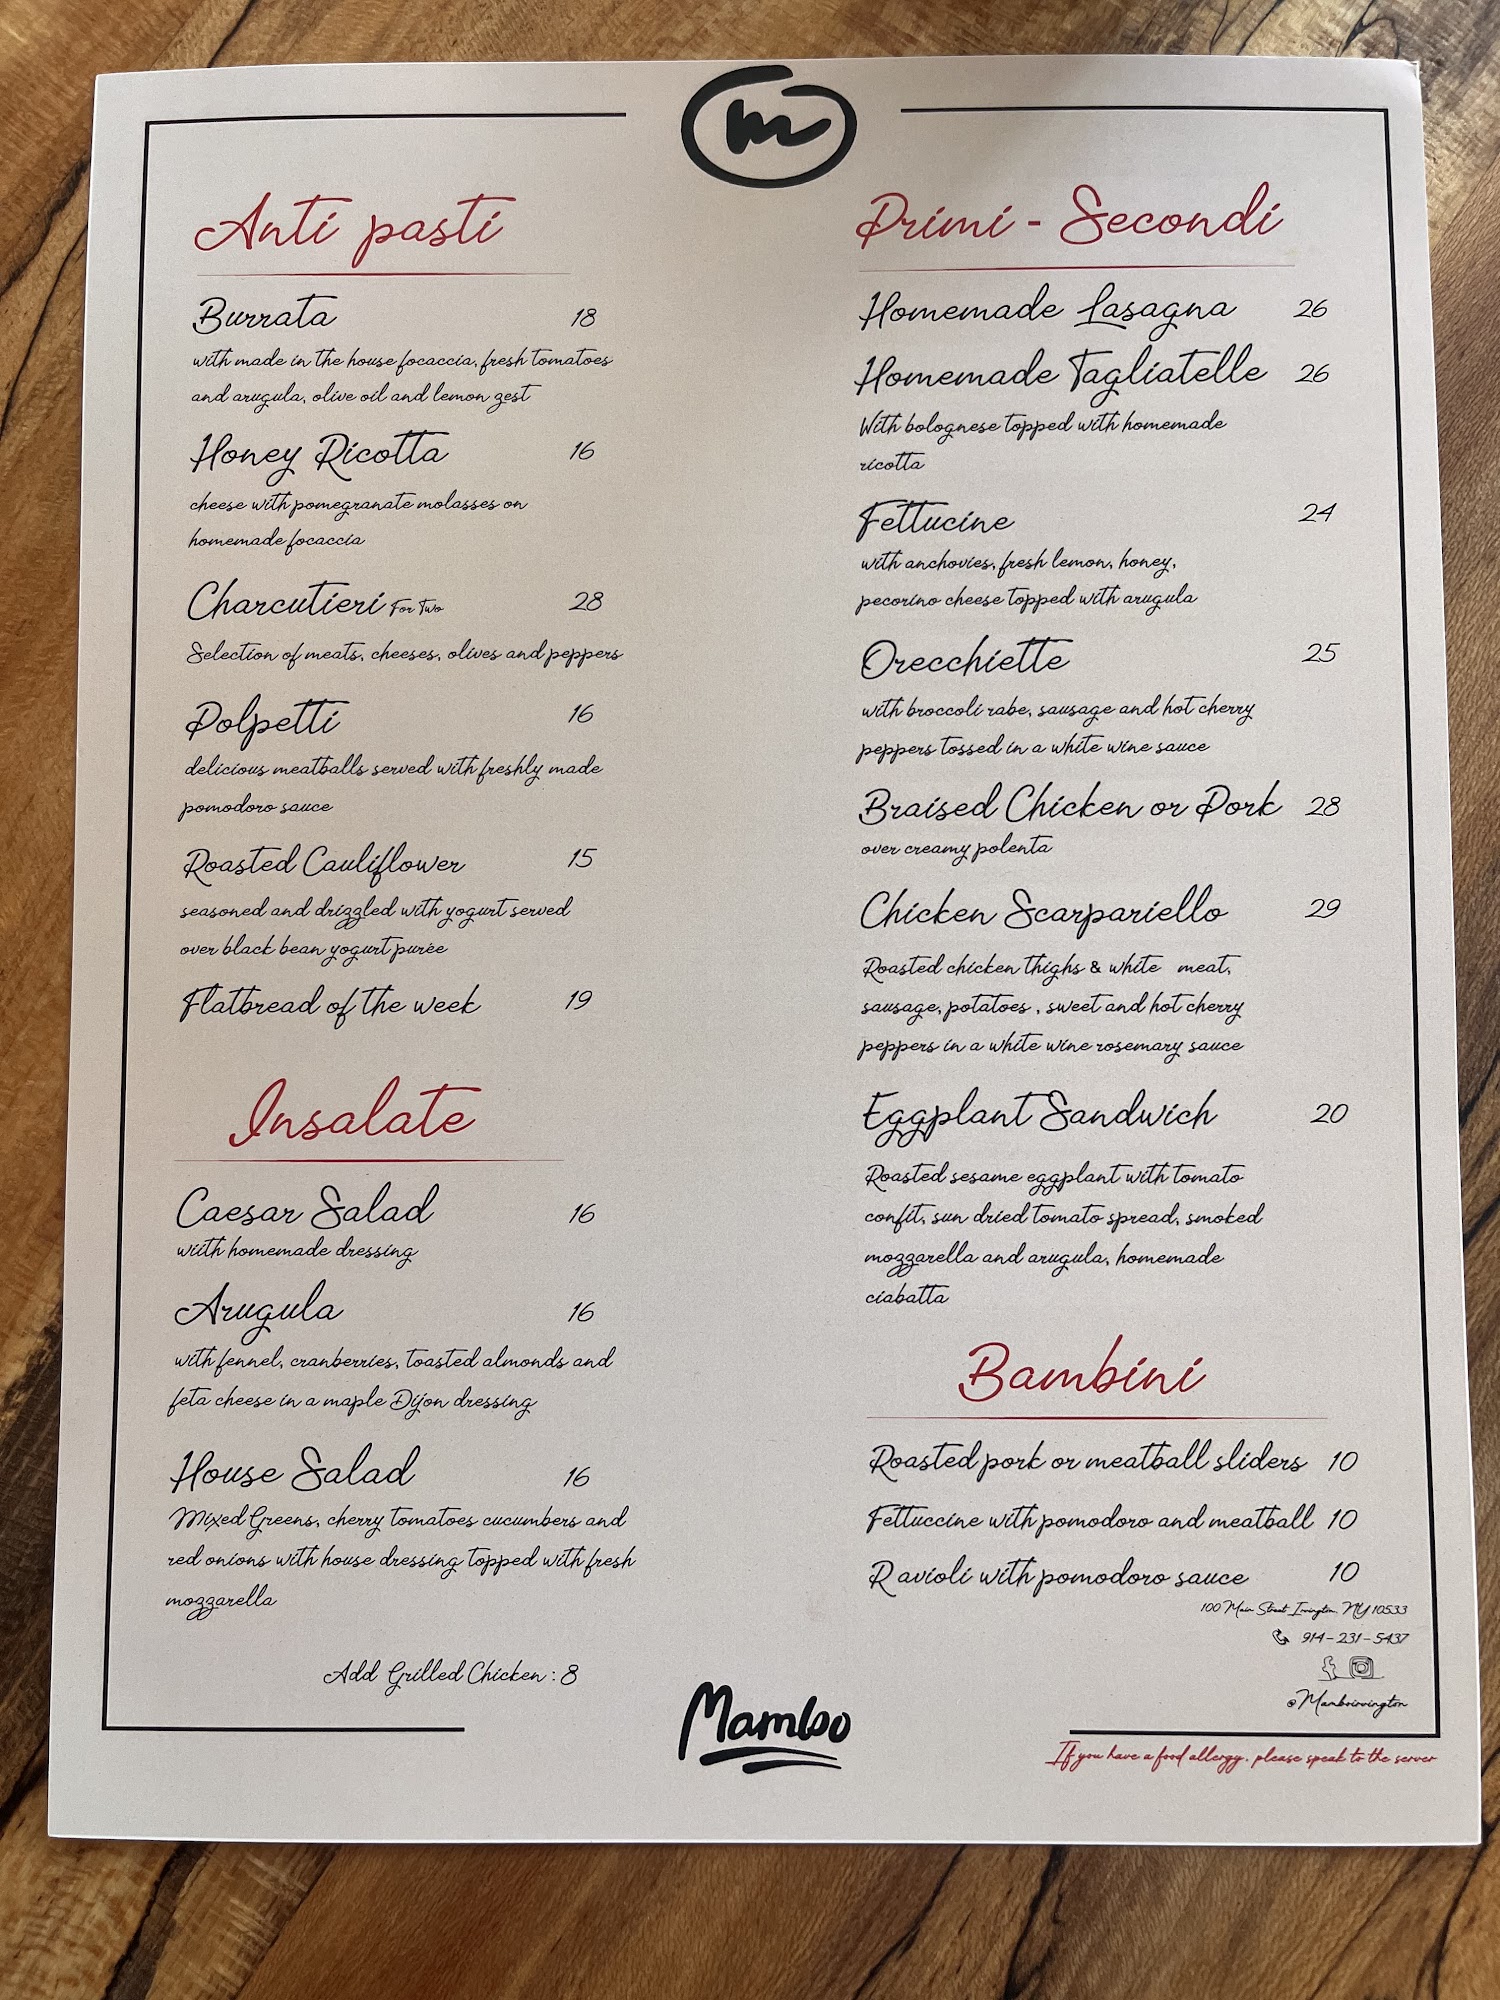 m
Anti pasti
Burrata 18
with made in the house focaccia, fresh tomatoes
and arugula, olive oil and lemon zest
Honey Ricotta 16
cheese with pomegranate molasses on
homemade focaccia
Charcutieri For Two 28
Selection of meats, cheeses, olives and peppers
Polpetti 16
delicious meatballs served with freshly made
pomodoro sauce
Roasted Cauliflower 15
seasoned and drizzled with yogurt served
over black bean yogurt purée
Flatbread of the week 19
Insalate
Caesar Salad 16
wiith homemade dressing
Arugula 16
with fennel, cranberries, toasted almonds and
feta cheese in a maple Dijon dressing
House Salad 16
Mixed Greens, cherry tomatoes cucumbers and
red onions with house dressing topped with fresh
mozzarella
Add Grilled Chicken : 8
Primi - Secondi
Homemade Lasagna 26
Homemade Tagliatelle 26
With bolognese topped with homemade
ricotta
Fettucine 24
with anchovies, fresh lemon, honey,
pecorino cheese topped with arugula
Orecchiette 25
with broccoli rabe, sausage and hot cherry
peppers tossed in a white wine sauce
Braised Chicken or Pork 28
over creamy polenta
Chicken Scarpariello 29
Roasted chicken thighs & white meat,
sausage, potatoes , sweet and hot cherry
peppers in a white wine rosemary sauce
Eggplant Sandwich 20
Roasted sesame eggplant with tomato
confit, sun dried tomato spread, smoked
mozzarella and arugula, homemade
ciabatta
Bambini
Roasted pork or meatball sliders 10
Fettuccine with pomodoro and meatball 10
Ravioli with pomodoro sauce 10
100 Main Street Irvington, NY 10533
914-231-5437
@Mamboirvington
Mamboo
If you have a food allergy, please speak to the server